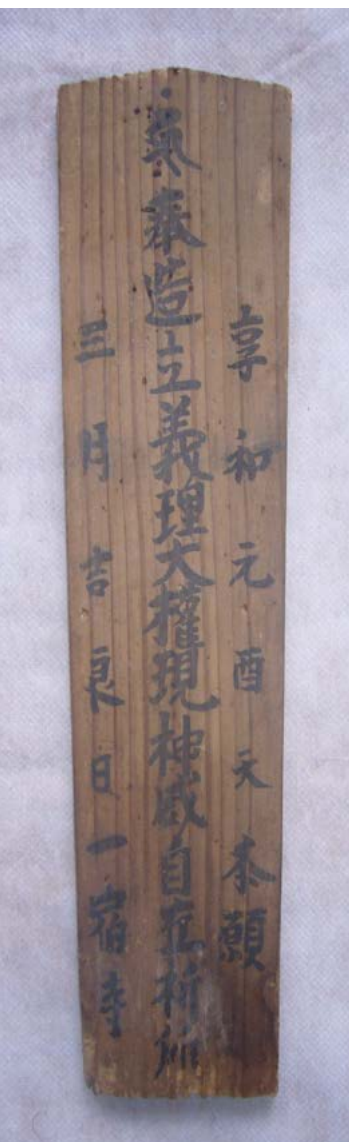 享和元酉天本願
奉造立義理大權現神威自在祈所
三月吉良日一宿寺